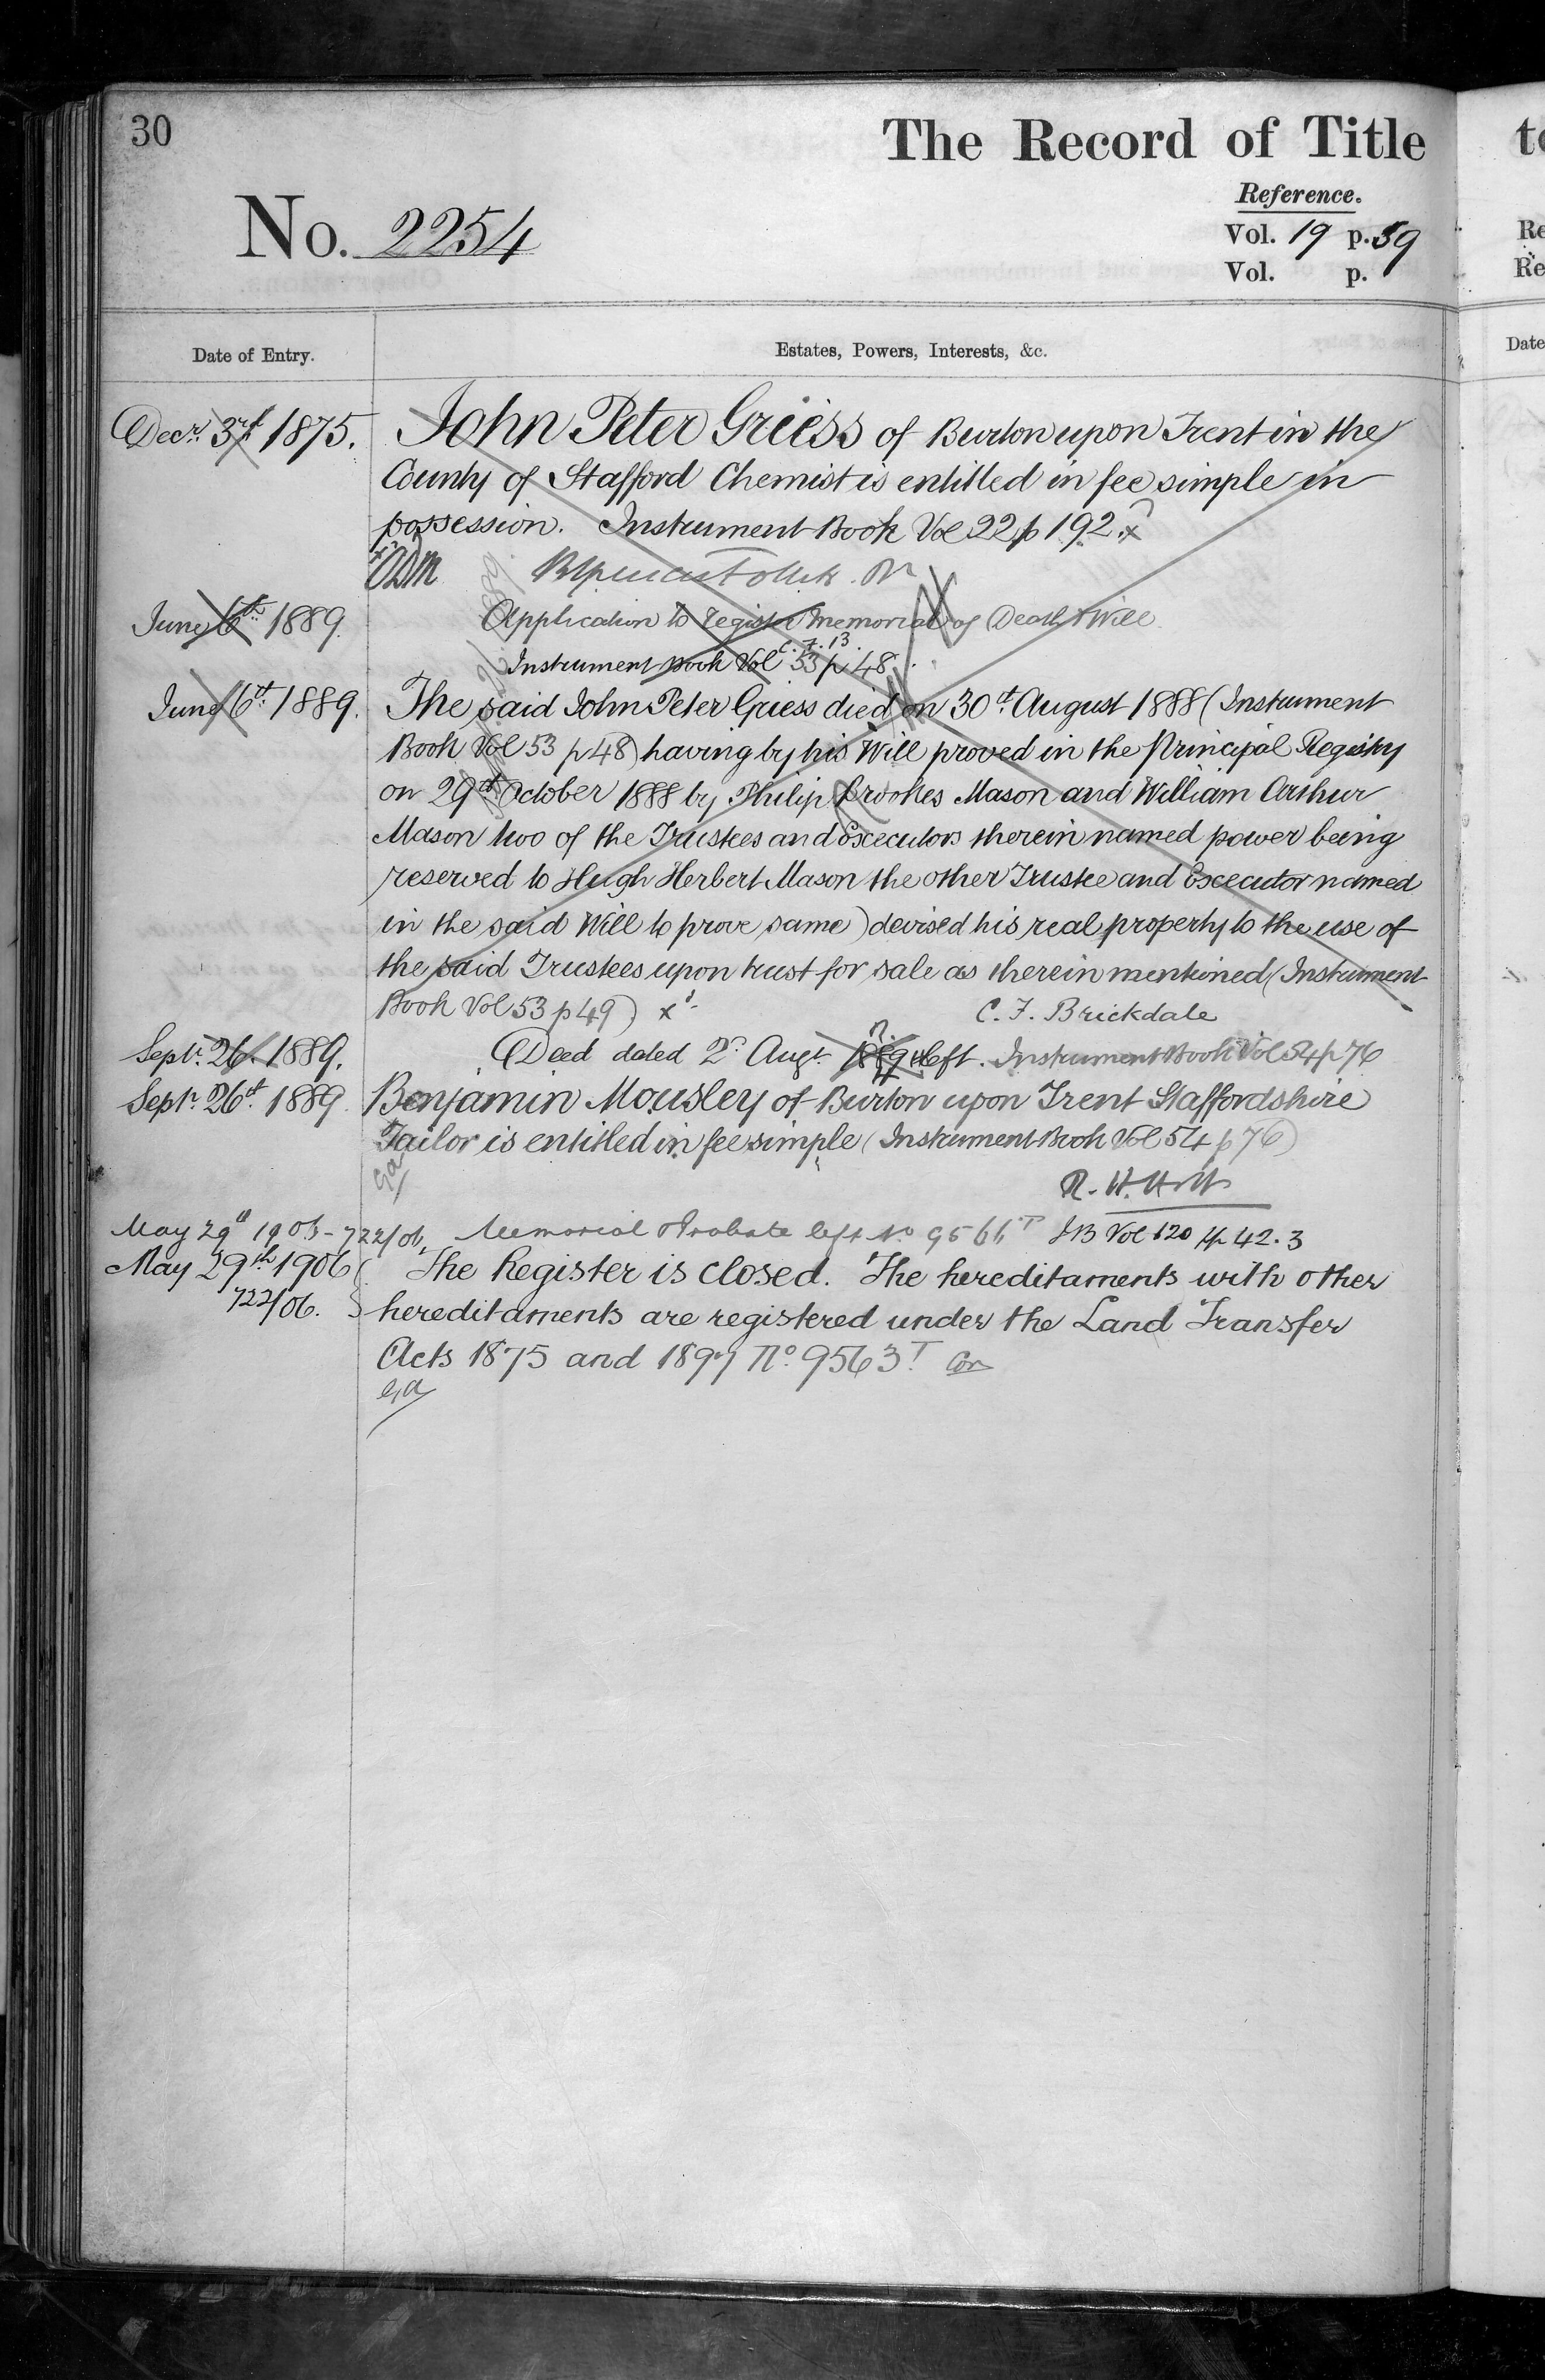 30
The Record of Title
Reference.
No. 2254
Vol. 19 p. 59
Vol. p.
Date of Entry.
Estates, Powers, Interests, &c.
Decr. 3rd 1875. John Peter Griess of Burton upon Trent in the
County of Stafford Chemist is entitled in fee simple in
possession. Instrument Book Vol 22 p 192. x
June 6th 1889. Application to register Memorial of Death & Will
C. F. B.
Instrument Book Vol 53 p 48.
June 6th 1889. The said John Peter Griess died on 30th August 1888 (Instrument
Book Vol 53 p 48) having by his Will proved in the Principal Registry
on 29th October 1888 by Philip Brookes Mason and William Arthur
Mason two of the Trustees and Executors therein named power being
reserved to Hugh Herbert Mason the other Trustee and Executor named
in the said Will to prove same) devised his real property to the use of
the said Trustees upon trust for sale as therein mentioned (Instrument
Book Vol 53 p 49) x
C. F. Brickdale
Septr. 26. 1889. Deed dated 2d Augt. 1889 left. Instrument Book Vol 54 p 76
Septr. 26th 1889 Benjamin Mousley of Burton upon Trent Staffordshire
Tailor is entitled in fee simple (Instrument Book Vol 54 p 76)
R. H. Holt
May 29th 1906 - 722/06. Memorial Probate left No IB Vol 120 pp 42.3
May 29th 1906 The Register is closed. The hereditaments with other
722/06. hereditaments are registered under the Land Transfer
Acts 1875 and 1897 No. 9563T
to
Re
Re
Date